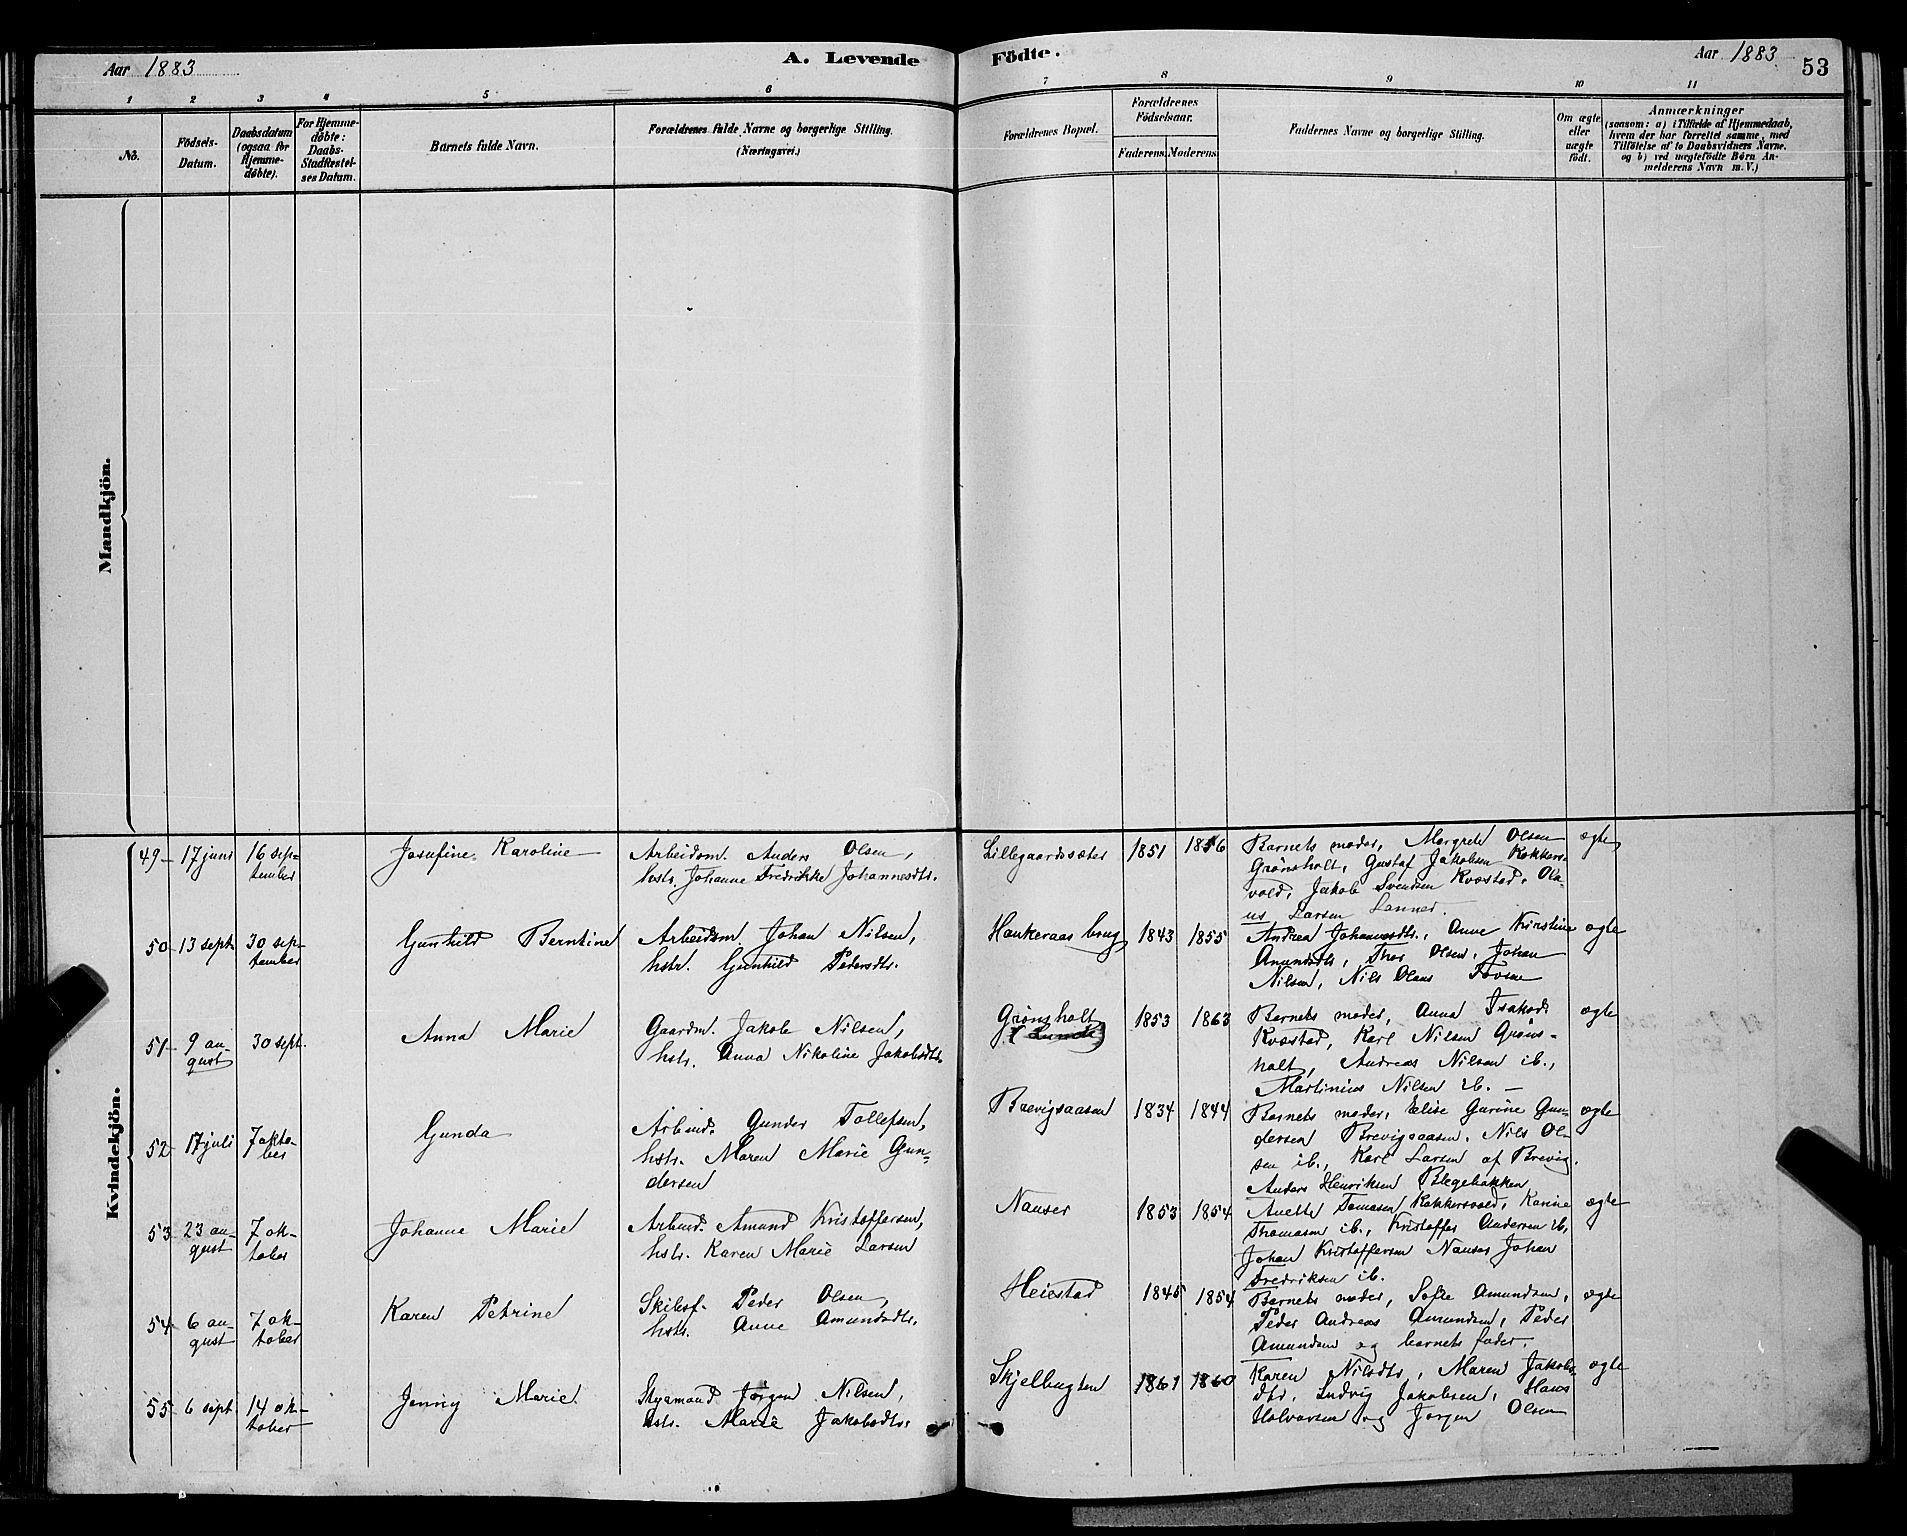 Aar 1883
A. Levende Födte.
Aar 1883
53
1 2 3 4 5 6 7 8 9 10 11
No.
Födsels-
Datum.
Daabsdatum
(ogsaa for
Hjemme-
døbte).
For Hjemme-
døbte:
Daabs-
Stadfæstel-
ses Datum.
Barnets fulde Navn.
Forældrenes fulde Navne og borgerlige Stilling.
(Næringsvei.)
Forældrenes Bopæl.
Forældrenes
Födselsaar.
Faderens. Moderens.
Faddernes Navne og borgerlige Stilling.
Om ægte
eller
uægte
født.
Anmærkninger
(saasom: a) i Tilfælde af Hjemmedaab,
hvem der har forrettet samme, med
Tilföielse af to Daabsvidners Navne.
og b) ved uægtefödte Börn An-
melderens Navn m. V.)
Mandkjön.
Kvindekjön.
49 17 juni
16 sep-
tember
Josefine Karoline
Arbeidsm. Anders Olsen,
hstr. Johanne Fredrikke Johannesdtr.
Lillegaardssæter 1851 1856
Barnets moder, Margrete Olsen
Grønsholt, Gustaf Jakobsen Kokkers-
vold, Jakob Svendsen Kvæstad, Ola-
us Larsen Lanner.
ægte
50 13 sept
30 sep-
tember
Gunhild Berntine
Arbeidsm. Johan Nilsen,
hstr. Gunhild Pedersdtr.
Haukeraas brug 1843 1855
Andrea Johannesdtr., Anne Kirstine
Amundsdtr, Thor Olsen, Johan
Nilsen, Nils Olaus Tovsen
ægte
51 9 au-
gust
30 sept.
Anna Marie
Gaardm. Jakob Nilsen,
hstr. Anna Nikoline Jakobsdtr.
Grønsholt
1853 1863
Barnets moder, Anna Isaksd.
Kvæstad, Karl Nilsen Grøns-
holt, Andreas Nilsen ib.,
Martinius Nilsen ib. —
ægte
52 17 juli
7 okto-
ber
Gunda
Arbeid. Gunder Tollefsen,
hstr. Maren Marie Gun-
dersen
Brevigsaasen 1834 1844
Barnets moder, Elise Gurine Gun-
dersen Brevigsaasen, Nils Ol-
sen ib., Karl Larsen af Brevig.
Anders Henriksen Blegebakken
ægte
53 23 au-
gust
7 ok-
tober
Johanne Marie
Arbeid. Amund Kristoffersen,
hstr. Karen Marie Larsen
Nauser 1853 1854
Anette Tomasen Kokkersvold, Karine
Thomasen ib., Kristoffer Andersen ib,
Johan Kristoffersen Nauser Johan
Fredriksen ib.
ægte
54 6 au-
gust
7 ok-
tober
Karen Petrine
Skibsf. Peder Olsen,
hstr. Anne Amundsdtr.
Heiestad 1845 1854
Barnets moder, Sofie Amundsen,
Peder Andreas Amundsen, Peder
Amundsen og barnets fader.
ægte
55 6 sept
14 ok-
tober
Jenny Marie
Styrmand Jørgen Nilsen,
hstr. Marie Jakobsdtr.
Skjelbugten 1861 1860
Karen Nilsdtr, Maren Jakobs-
dtr, Ludvig Jakobsen, Hans
Halvorsen og Jørgen Olsen
ægte